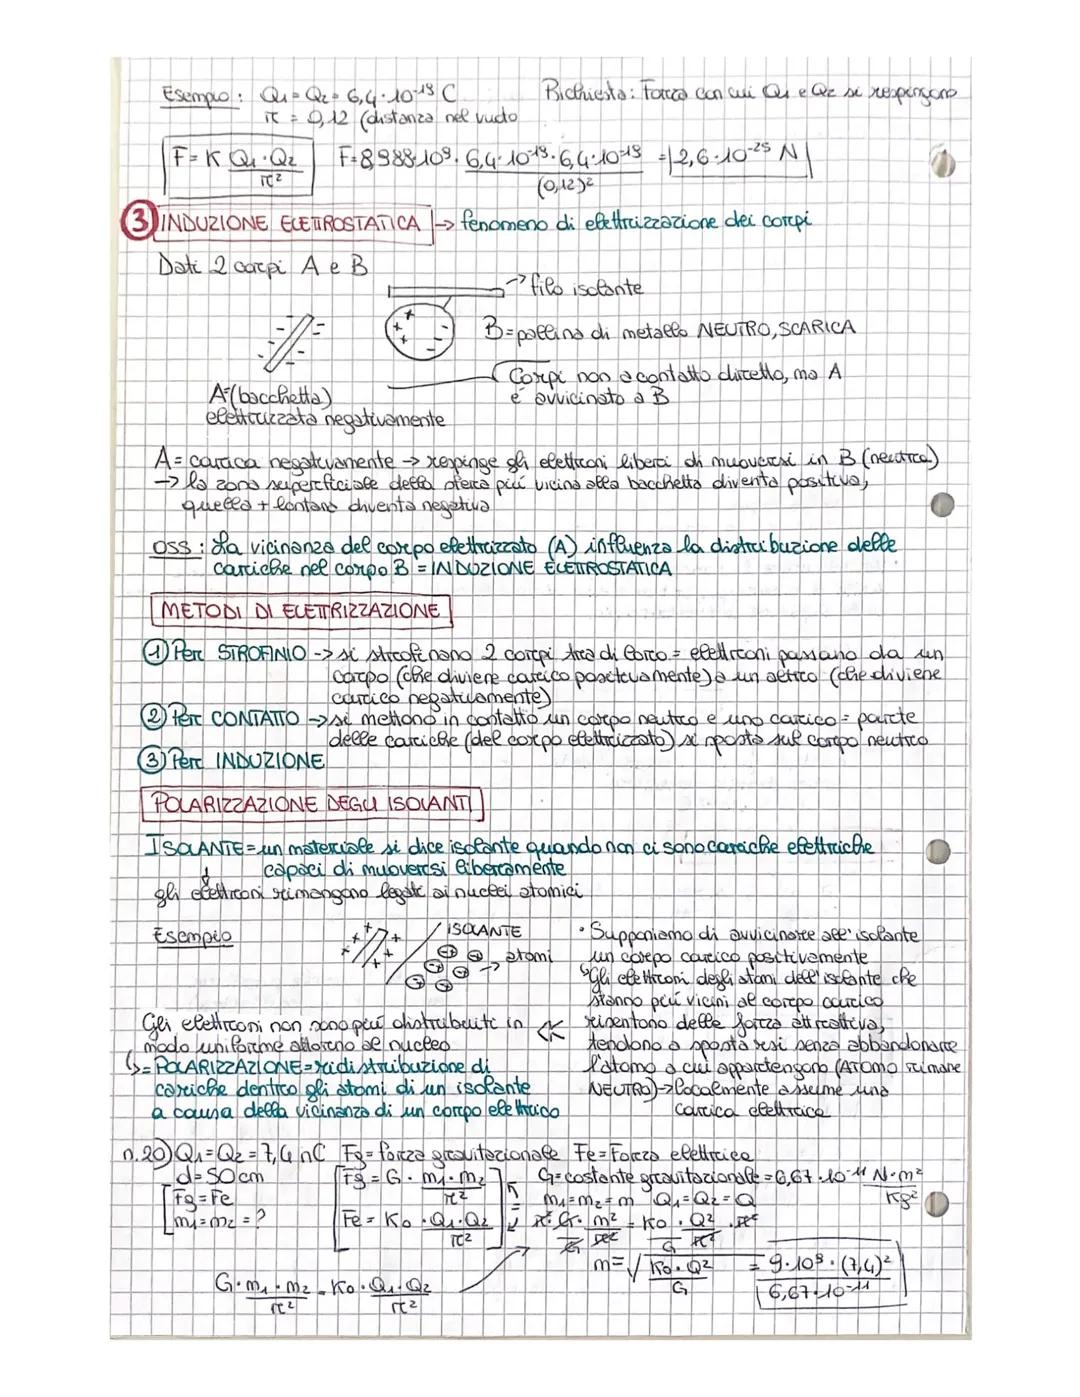 Esempio: Q₁=Q₂=6,4·10⁻¹⁹ C Richiesta: Forza con cui Q₁ e Q₂ si respingono
r = 0,12 (distanza nel vuoto
F=K Q₁·Q₂/r² F=8,988·10⁹· 6,4·10⁻¹⁹·6,4·10⁻¹⁹/(0,12)² = 2,6·10⁻²⁵ N
③ INDUZIONE ELETTROSTATICA → fenomeno di elettrizzazione dei corpi
Dati 2 corpi A e B
→ filo isolante
B=pallina di metallo NEUTRO, SCARICA
Corpi non a contatto diretto, ma A
è avvicinato a B
A=(bacchetta)
elettrizzata negativamente
A= carica negativamente → respinge gli elettroni liberi di muoversi in B (neutra)
→ la zona superficiale della sfera più vicina alla bacchetta diventa positiva,
quella + lontana diventa negativa
OSS: La vicinanza del corpo elettrizzato (A) influenza la distribuzione delle
cariche nel corpo B = INDUZIONE ELETTROSTATICA
METODI DI ELETTRIZZAZIONE
① Per STROFINIO -> si strofinano 2 corpi tra di loro = elettroni passano da un
corpo (che diviene carico positivamente) a un altro (che diviene
carico negativamente)
② Per CONTATTO → si mettono in contatto un corpo neutro e uno carico = parte
delle cariche (del corpo elettrizzato) si sposta sul corpo neutro
③ Per INDUZIONE
POLARIZZAZIONE DEGLI ISOLANTI
ISOLANTE= un materiale si dice isolante quando non ci sono cariche elettriche
capaci di muoversi liberamente
gli elettroni rimangono legati ai nuclei atomici
Esempio
ISOLANTE
→ atomi
• Supponiamo di avvicinare all'isolante
un corpo carico positivamente
Gli elettroni degli atomi dell'isolante che
stanno più vicini al corpo carico
risentono della forza attrattiva,
tendono a spostarsi senza abbandonare
l'atomo a cui appartengono (ATOMO rimane
NEUTRO) → localmente assume una
carica elettrica
Gli elettroni non sono più distribuiti in
modo uniforme attorno al nucleo
↳= POLARIZZAZIONE= ridistribuzione di
cariche dentro gli atomi di un isolante
a causa della vicinanza di un corpo elettrico
n.20) Q₁=Q₂=7,4 nC Fg= forza gravitazionale Fe=Forza elettrica
d=50cm
Fg=Fe
m₁=m₂=?
Fg=G· m₁·m₂/r²
Fe= K₀ · Q₁·Q₂/r²
G=costante gravitazionale=6,67·10⁻¹¹ N·m²/Kg²
m₁=m₂=m Q₁=Q₂=Q
r²·G·m²/G r² = K₀·Q²/G r² · r²
m=√K₀·Q²/G = 9·10⁹·(7,4)²/6,67·10⁻¹¹
G·m₁·m₂/r² = K₀·Q₁·Q₂/r²